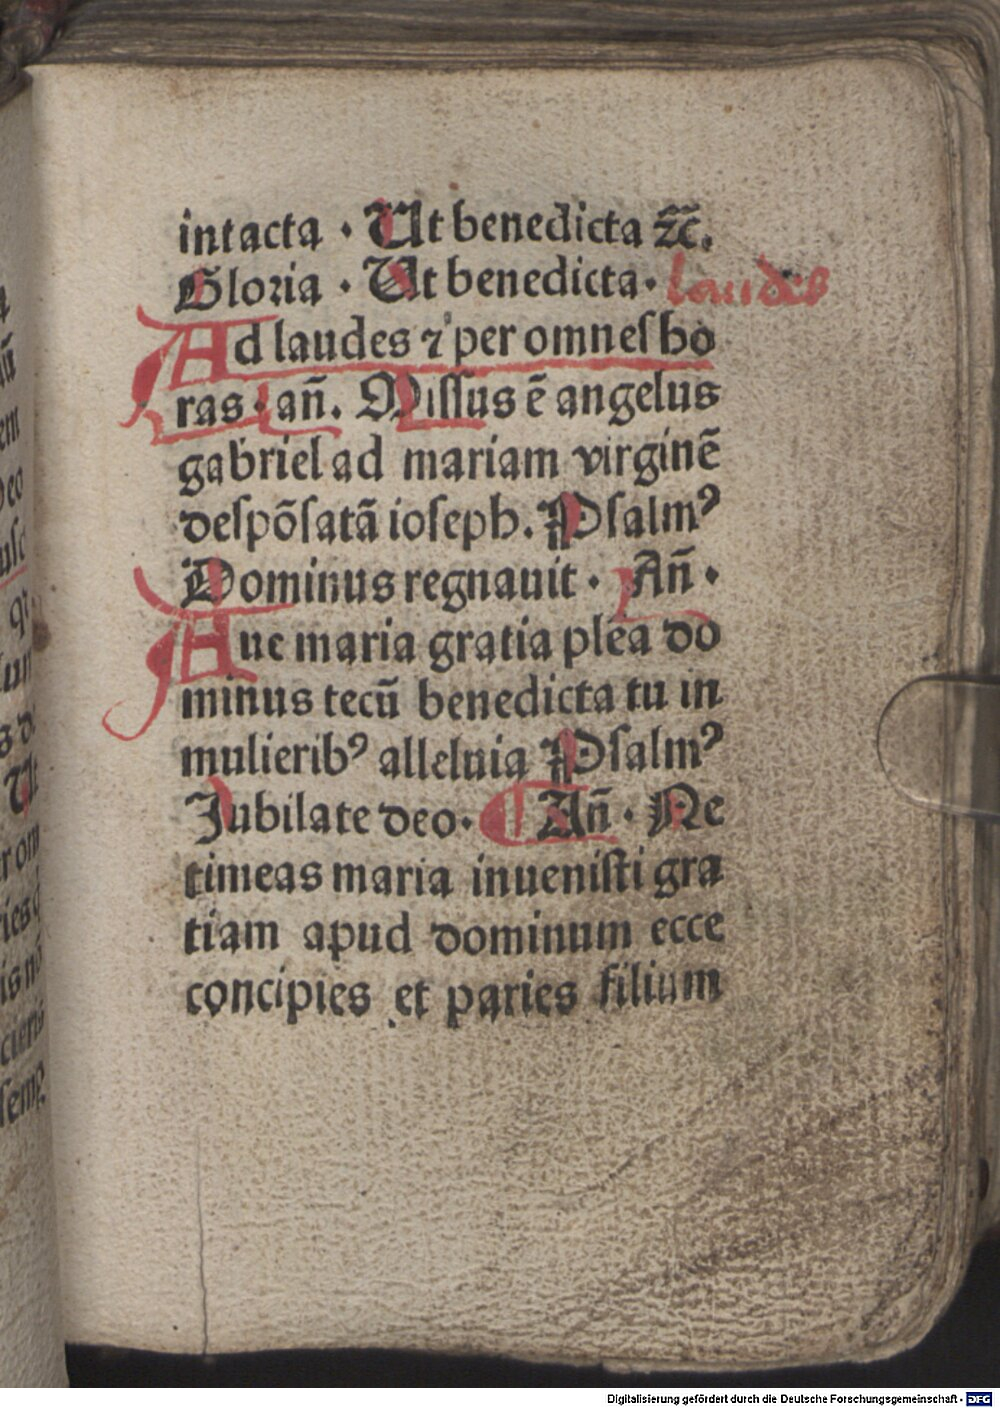 intacta · Ut benedicta ⁊c̃.
Gloria · Ut benedicta · laudes
Ad laudes ⁊ per omneſ ho
ras · an̄. Miſſus ē angelus
gabriel ad mariam virginē
deſpōſatā ioſeph. Pſalmꝰ
Dominus regnauit · An̄ ·
Aue maria gratia plēa do
minus tecū benedicta tu in
mulieribꝰ alleluia Pſalmꝰ
Jubilate deo · An̄ · Ne
timeas maria inueniſti gra
tiam apud dominum ecce
concipies et paries filium
Digitalisierung gefördert durch die Deutsche Forschungsgemeinschaft - DFG